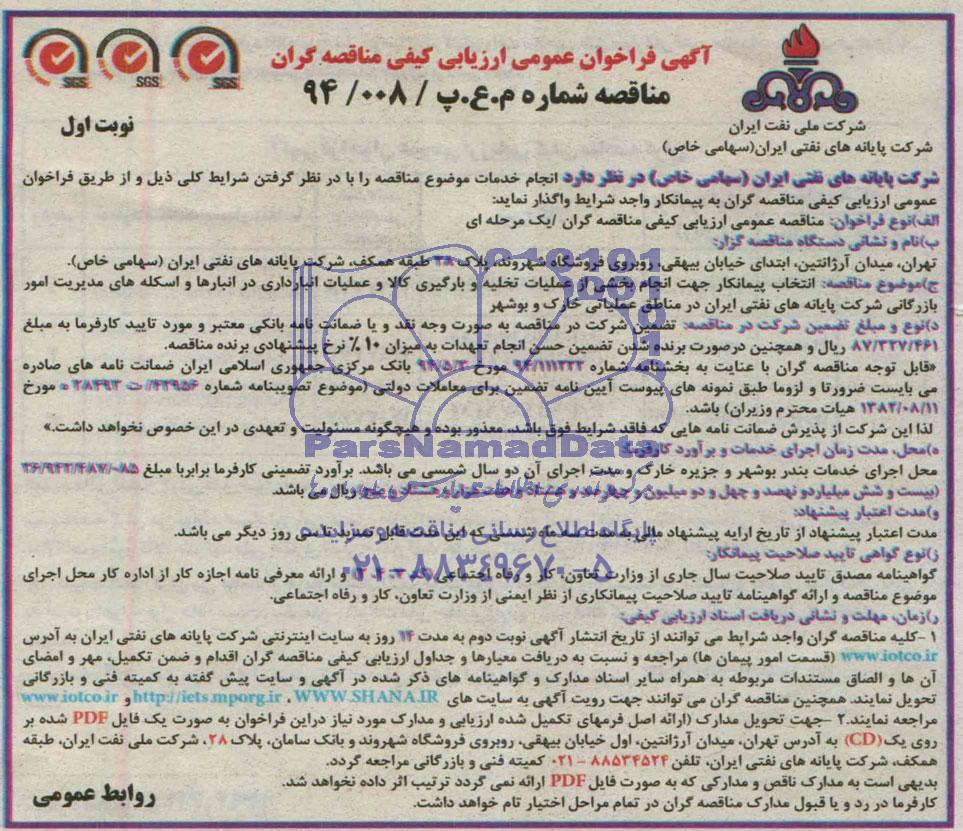 آگهی فراخوان عمومی ارزیابی کیفی مناقصه گران
مناقصه شماره م.ع.پ / ۰۰۸ / ۹۴
SGS SGS SGS
نوبت اول
شرکت ملی نفت ایران
شرکت پایانه های نفتی ایران(سهامی خاص)
شرکت پایانه های نفتی ایران (سهامی خاص) در نظر دارد انجام خدمات موضوع مناقصه را با در نظر گرفتن شرایط کلی ذیل و از طریق فراخوان
عمومی ارزیابی کیفی مناقصه گران به پیمانکار واجد شرایط واگذار نماید:
الف)نوع فراخوان: مناقصه عمومی ارزیابی کیفی مناقصه گران /یک مرحله ای
ب)نام و نشانی دستگاه مناقصه گزار:
تهران، میدان آرژانتین، ابتدای خیابان بیهقی، روبروی فروشگاه شهروند، پلاک ۲۸ طبقه همکف، شرکت پایانه های نفتی ایران (سهامی خاص).
ج)موضوع مناقصه: انتخاب پیمانکار جهت انجام بخشی از عملیات تخلیه و بارگیری کالا و عملیات انبارداری در انبارها و اسکله های مدیریت امور
بازرگانی شرکت پایانه های نفتی ایران در مناطق عملیاتی خارک و بوشهر
د)نوع و مبلغ تضمین شرکت در مناقصه: تضمین شرکت در مناقصه به صورت وجه نقد و یا ضمانت نامه بانکی معتبر و مورد تایید کارفرما به مبلغ
۸۷/۳۳۷/۴۶۱ ریال و همچنین درصورت برنده شدن تضمین حسن انجام تعهدات به میزان ۱۰ ٪ نرخ پیشنهادی برنده مناقصه.
«قابل توجه مناقصه گران با عنایت به بخشنامه شماره ۹۴/۱۱۱۲۳۳ مورخ ۹۴/۵/۳ بانک مرکزی جمهوری اسلامی ایران ضمانت نامه های صادره
می بایست ضرورتا و لزوما طبق نمونه های پیوست آیین نامه تضمین برای معاملات دولتی (موضوع تصویبنامه شماره ۴۲۹۵۶/ت ۲۸۴۹۳ ه مورخ
۱۳۸۲/۰۸/۱۱ هیات محترم وزیران) باشد.
لذا این شرکت از پذیرش ضمانت نامه هایی که فاقد شرایط فوق باشد، معذور بوده و هیچگونه مسئولیت و تعهدی در این خصوص نخواهد داشت.»
ه)محل، مدت زمان اجرای خدمات و برآورد کارفرما:
محل اجرای خدمات بندر بوشهر و جزیره خارگ و مدت اجرای آن دو سال شمسی می باشد. برآورد تضمینی کارفرما برابربا مبلغ ۲۶/۹۴۲/۴۸۷/۰۸۵
(بیست و شش میلیاردو نهصد و چهل و دو میلیون و چهارصد و هشتاد و هفت هزار و هشتاد و پنج) ریال می باشد.
و)مدت اعتبار پیشنهاد:
مدت اعتبار پیشنهاد از تاریخ ارایه پیشنهاد مالی به مدت سه ماه شمسی که این مدت قابل تمدید تا سی روز دیگر می باشد.
ز)نوع گواهی تایید صلاحیت پیمانکار:
گواهینامه مصدق تایید صلاحیت سال جاری از وزارت تعاون، کار و رفاه اجتماعی و ارائه معرفی نامه اجازه کار از اداره کار محل اجرای
موضوع مناقصه و ارائه گواهینامه تایید صلاحیت پیمانکاری از نظر ایمنی از وزارت تعاون، کار و رفاه اجتماعی.
ر)زمان، مهلت و نشانی دریافت اسناد ارزیابی کیفی:
۱ -کلیه مناقصه گران واجد شرایط می توانند از تاریخ انتشار آگهی نوبت دوم به مدت ۱۴ روز به سایت اینترنتی شرکت پایانه های نفتی ایران به آدرس
www.iotco.ir (قسمت امور پیمان ها) مراجعه و نسبت به دریافت معیارها و جداول ارزیابی کیفی مناقصه گران اقدام و ضمن تکمیل، مهر و امضای
آن ها و الصاق مستندات مربوطه به همراه سایر اسناد مدارک و گواهینامه های ذکر شده در آگهی و سایت پیش گفته به کمیته فنی و بازرگانی
تحویل نمایند. همچنین مناقصه گران می توانند جهت رویت آگهی به سایت های WWW.SHANA.IR ، http://iets.mporg.ir و www.iotco.ir
مراجعه نمایند.۲ -جهت تحویل مدارک (ارائه اصل فرمهای تکمیل شده ارزیابی و مدارک مورد نیاز دراین فراخوان به صورت یک فایل PDF شده بر
روی یک (CD) به آدرس تهران، میدان آرژانتین، اول خیابان بیهقی، روبروی فروشگاه شهروند و بانک سامان، پلاک ۲۸، شرکت ملی نفت ایران، طبقه
همکف، شرکت پایانه های نفتی ایران، تلفن ۸۸۵۳۴۵۲۴ - ۰۲۱ کمیته فنی و بازرگانی مراجعه گردد.
بدیهی است به مدارک ناقص و مدارکی که به صورت فایل PDF ارائه نمی گردد ترتیب اثر داده نخواهد شد.
کارفرما در رد و یا قبول مدارک مناقصه گران در تمام مراحل اختیار تام خواهد داشت.
روابط عمومی
ParsNamadData
پایگاه اطلاع رسانی مناقصه و مزایده
۰۲۱-۸۸۳۴۹۶۷۰-۵